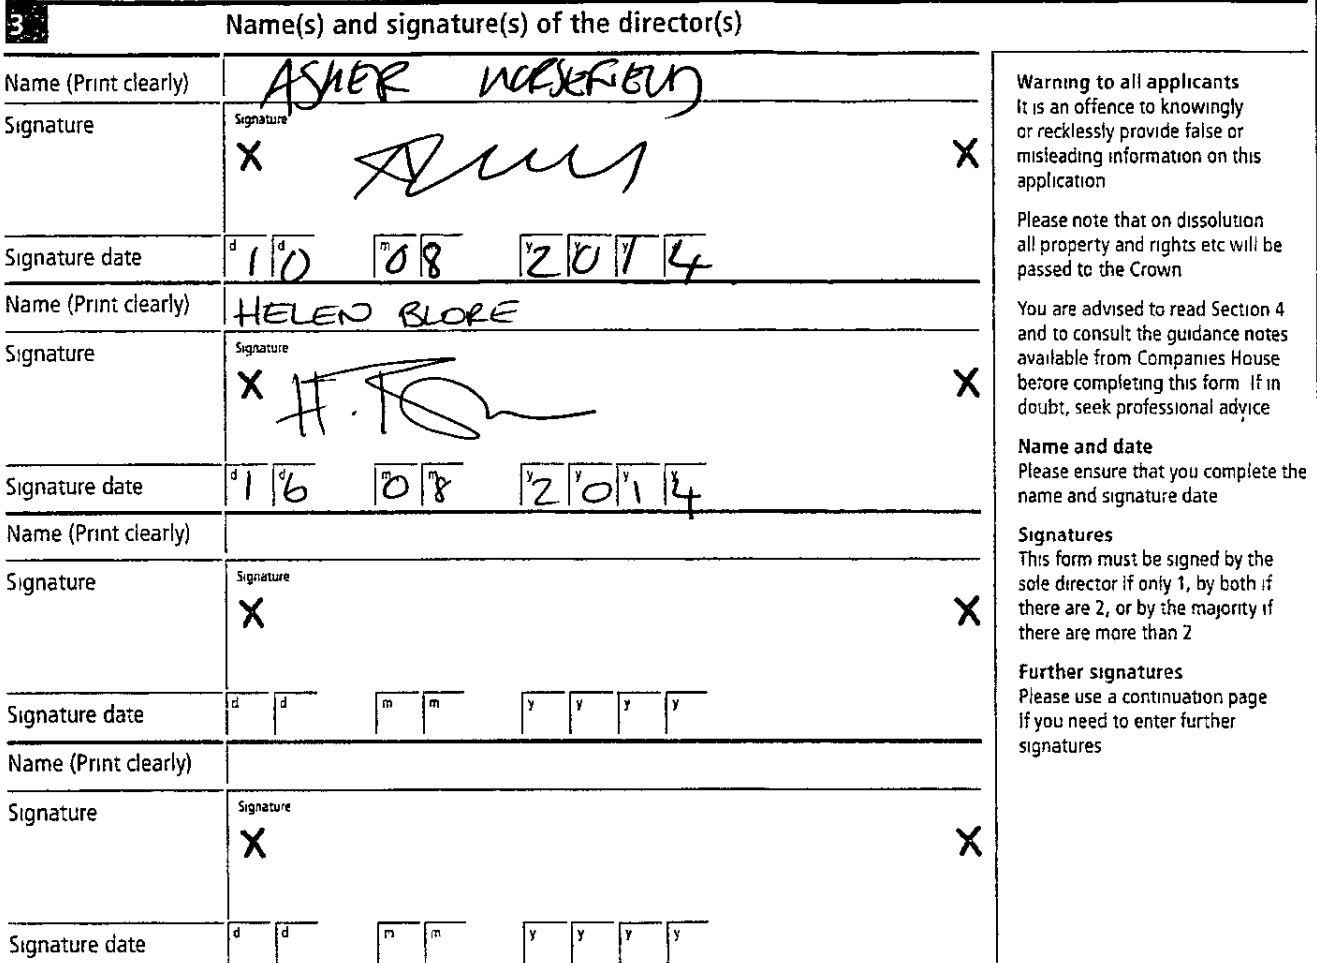 3 Name(s) and signature(s) of the director(s)
Name (Print clearly) ASHER
Signature Signature
X X
Signature date d d m m y y y y 10 08 2014
Name (Print clearly) HELEN BLORE
Signature Signature
X H. X
Signature date d d m m y y y y 16 08 2014
Name (Print clearly)
Signature Signature
X X
Signature date d d m m y y y y
Name (Print clearly)
Signature Signature
X X
Signature date d d m m y y y y
Warning to all applicants
It is an offence to knowingly
or recklessly provide false or
misleading information on this
application
Please note that on dissolution
all property and rights etc will be
passed to the Crown
You are advised to read Section 4
and to consult the guidance notes
available from Companies House
before completing this form If in
doubt, seek professional advice
Name and date
Please ensure that you complete the
name and signature date
Signatures
This form must be signed by the
sole director if only 1, by both if
there are 2, or by the majority if
there are more than 2
Further signatures
Please use a continuation page
if you need to enter further
signatures